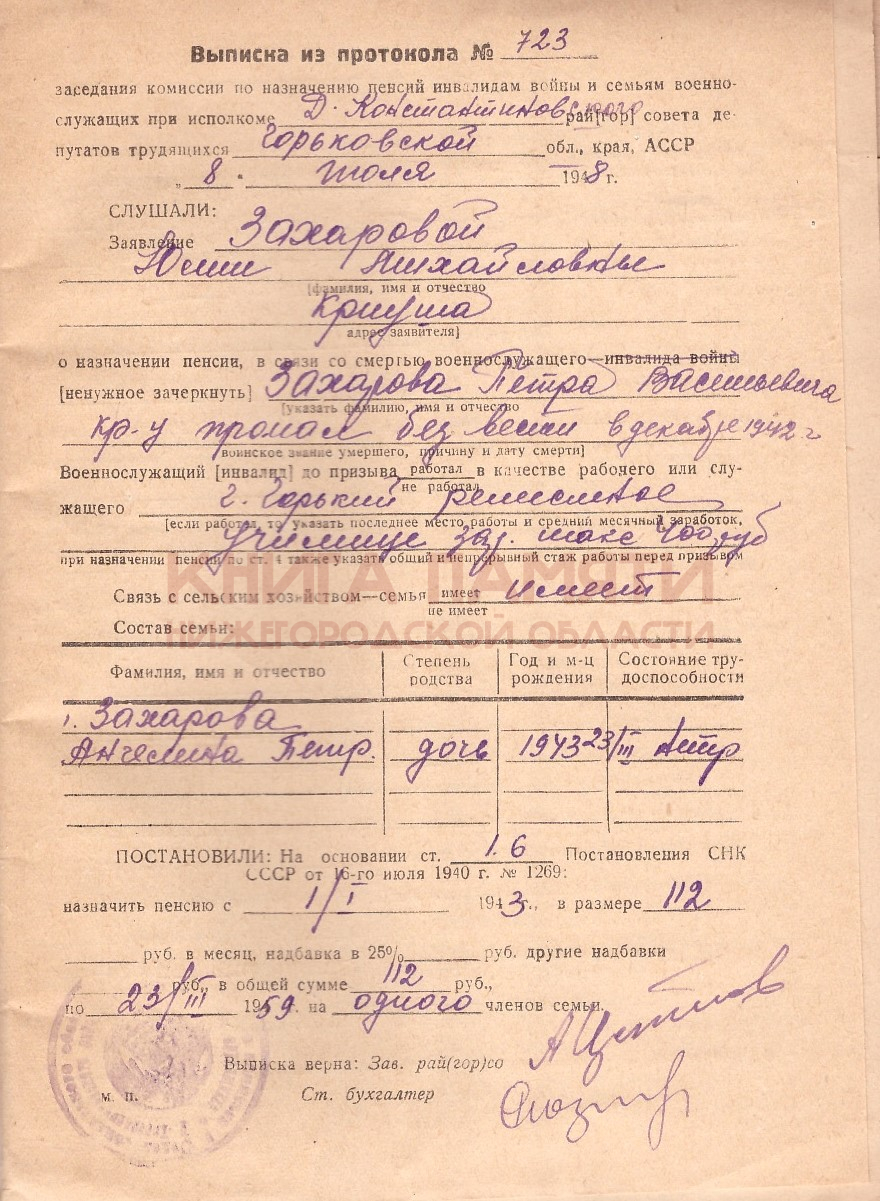 Выписка из протокола № 723
заседания комиссии по назначению пенсий инвалидам войны и семьям военно-
служащих при исполкоме Д. Константиновского рай[гор] совета де-
путатов трудящихся Горьковской обл., края, АССР
„ 8 " июля 1948 г.
СЛУШАЛИ:
Заявление Захаровой
Михайловны
[фамилия, имя и отчество
Криуша
адрес заявителя]
о назначении пенсии, в связи со смертью военнослужащего—инвалида войны
[ненужное зачеркнуть] Захарова Петра Васильевича
[указать фамилию, имя и отчество
кр-ц пропал без вести в декабре 1942 г
воинское звание умершего, причину и дату смерти]
Военнослужащий [инвалид] до призыва работал в качестве рабочего или слу-
не работал
жащего г. Горький ремесленное
[если работал, то указать последнее место работы и средний месячный заработок,
училище зар. плата 400 руб
при назначении пенсии по ст. 4 также указать общий и непрерывный стаж работы перед призывом
КНИГА ПАМЯТИ
Связь с сельским хозяйством—семья имеет имеет
не имеет
НИЖЕГОРОДСКОЙ ОБЛАСТИ
Состав семьи:
Фамилия, имя и отчество Степень родства Год и м-ц рождения Состояние тру-доспособности
1. Захарова
Ангелина Петр. дочь 1943 23/III нетр
ПОСТАНОВИЛИ: На основании ст. 1.6 Постановления СНК
СССР от 16-го июля 1940 г. № 1269:
назначить пенсию с 1/I 1943 г., в размере 112
руб. в месяц, надбавка в 25% руб. другие надбавки
руб., в общей сумме 112 руб.,
по 23/III 1959 г. на одного членов семьи.
Выписка верна: Зав. рай(гор)со
м. п. Ст. бухгалтер